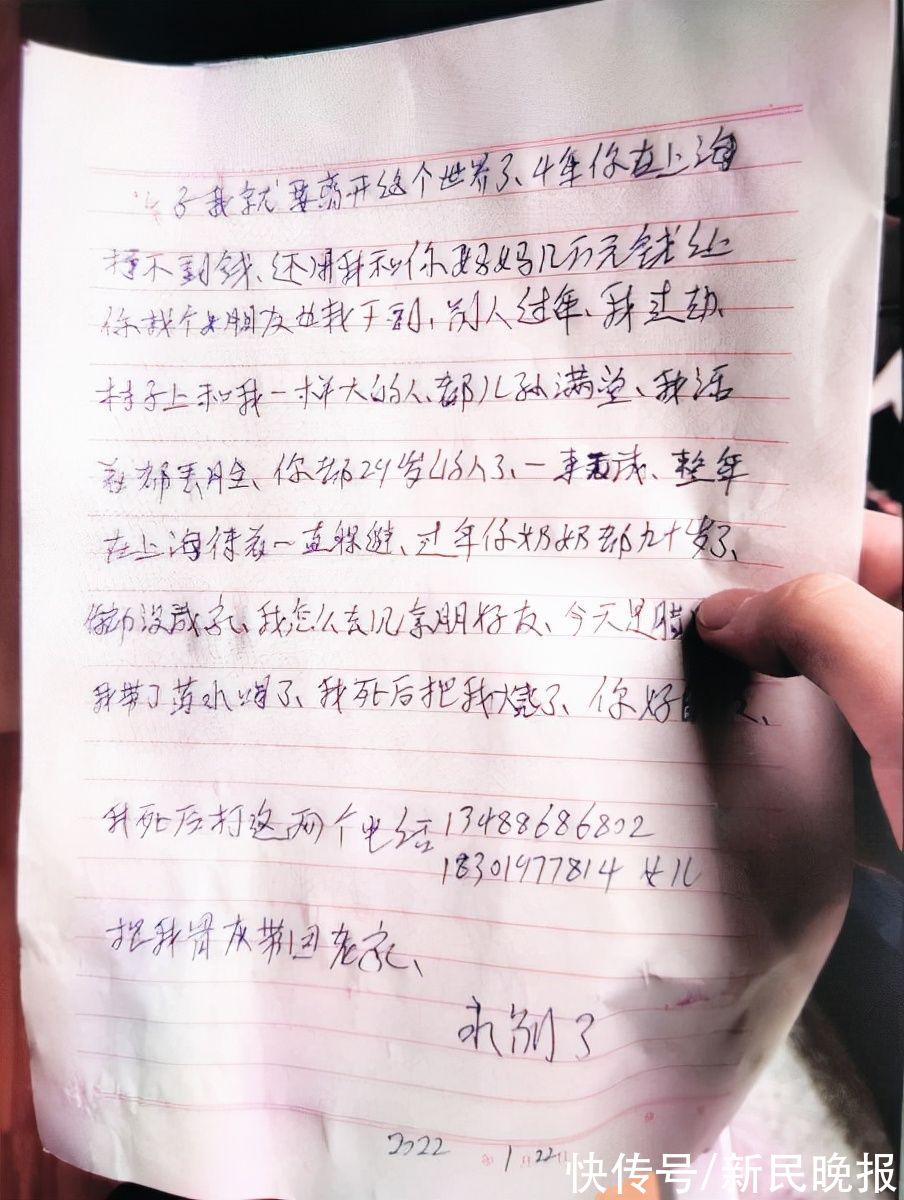 子我就要离开这个世界了、4年你在上海
挣不到钱、还用我和你妈妈几万元钱、让
你找个女朋友也找不到、别人过年、我过劫、
村子上和我一样大的人、都儿孙满堂、我活
着都丢脸、你都29岁的人了、一事无成、整年
在上海待着一直躲避、过年你奶奶都九十岁了、
你都没成家、我怎么去见亲朋好友、今天是腊
我带了药水喝了、我死后把我烧了、你好
我死后打这两个电话 13488686802
18301977814 女儿
把我骨灰带回老家、
永别了
2022 1 22
快传号/新民晚报